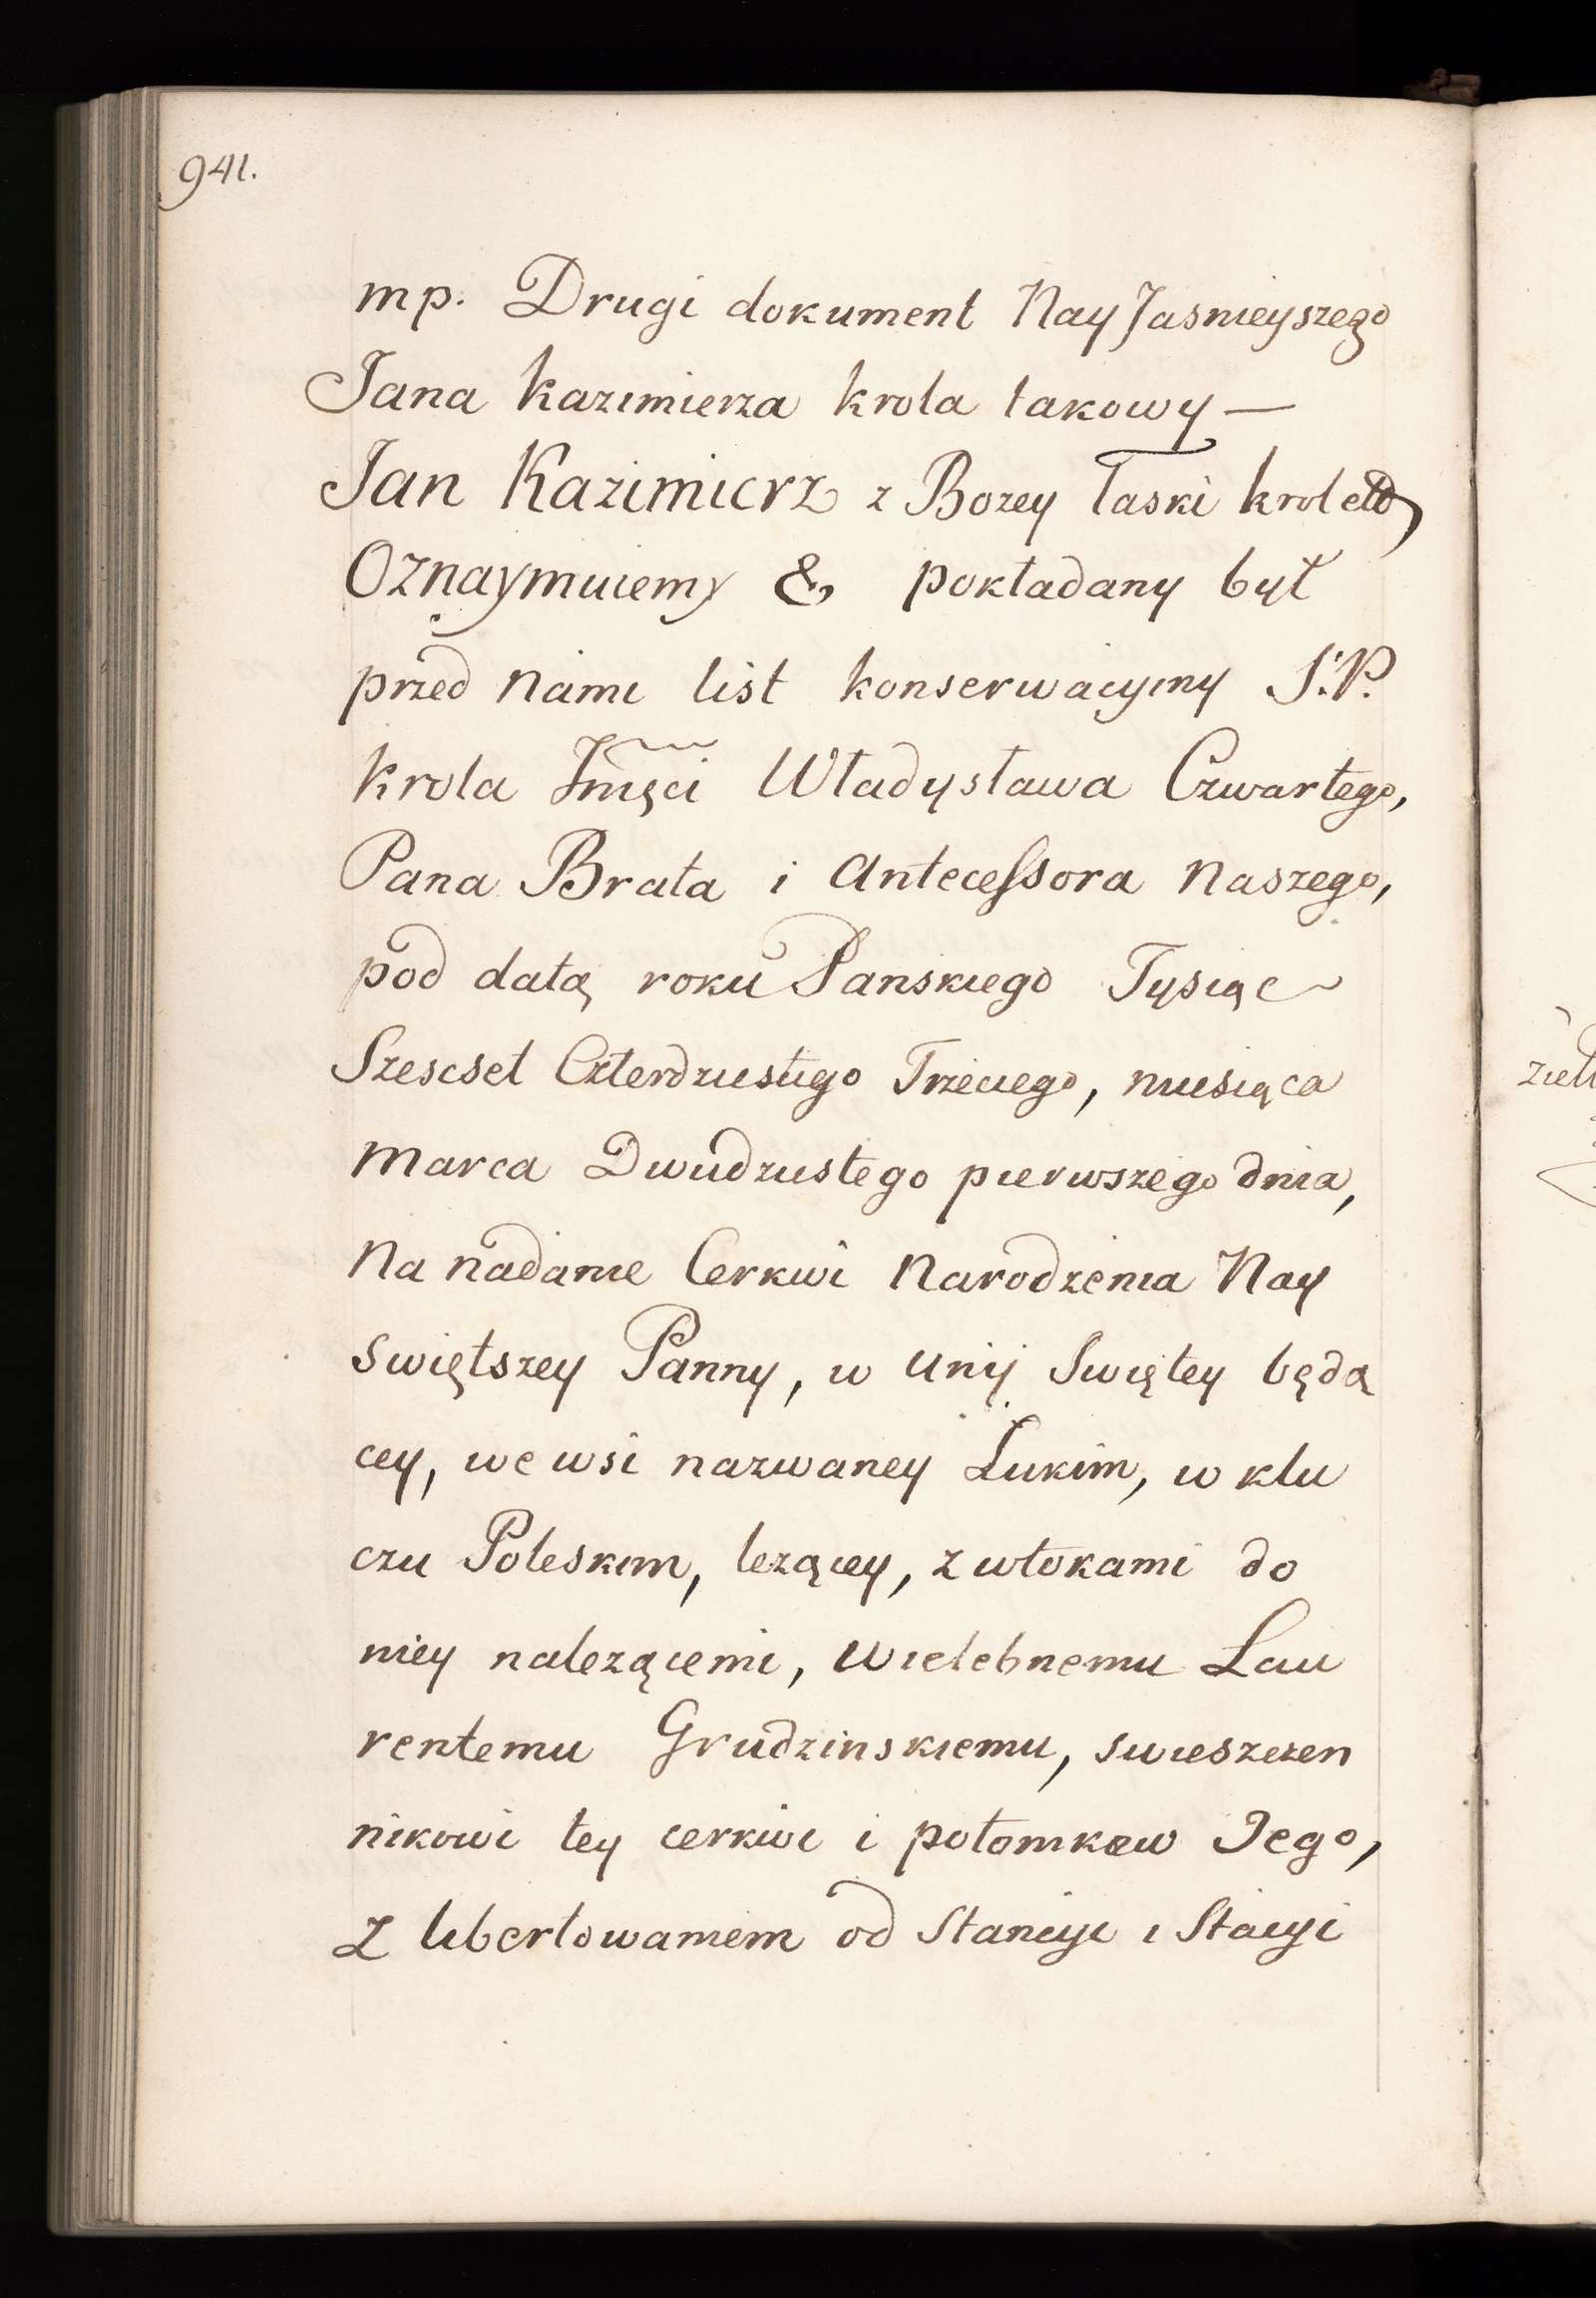 941.
mp. Drugi dokument Nay Jasnieyszego
Jana Kazimierza krola takowy —
Jan Kazimierz z Bozey łaski krol etc
Oznaymuiemy &, pokładany był
przed Nami list konserwacyiny S.P.
krola Jmści Władysława Czwartego,
Pana Brata i Antecessora Naszego,
pod datą roku Panskiego Tysiąc
Szescset Czterdziestego Trzeciego, miesiąca
Marca Dwudziestego pierwszego dnia,
Na nadanie Cerkwi Narodzenia Nay
swiętszey Panny, w Unij Swiętey będą
cey, we wsi nazwaney Łukim, w klu
czu Poleskim, lezącey, z włokami do
niey nalezącemi, Wielebnemu Lau
rentemu Grudzinskiemu, swieszczen
nikowi tey cerkwi i potomkow Jego,
Z libertowaniem od Stancyi i Stacyi